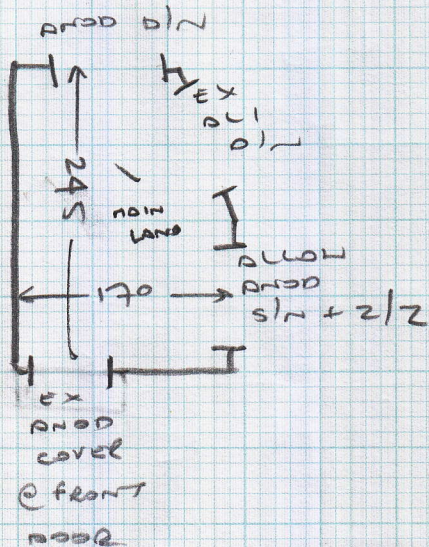 ANOD D/N
EX
ALI
D/N
245
MAIN
LAND
ALLOW
ANOD
S/N + 2/2
170
EX
ANOD
COVER
@ FRONT
DOOR